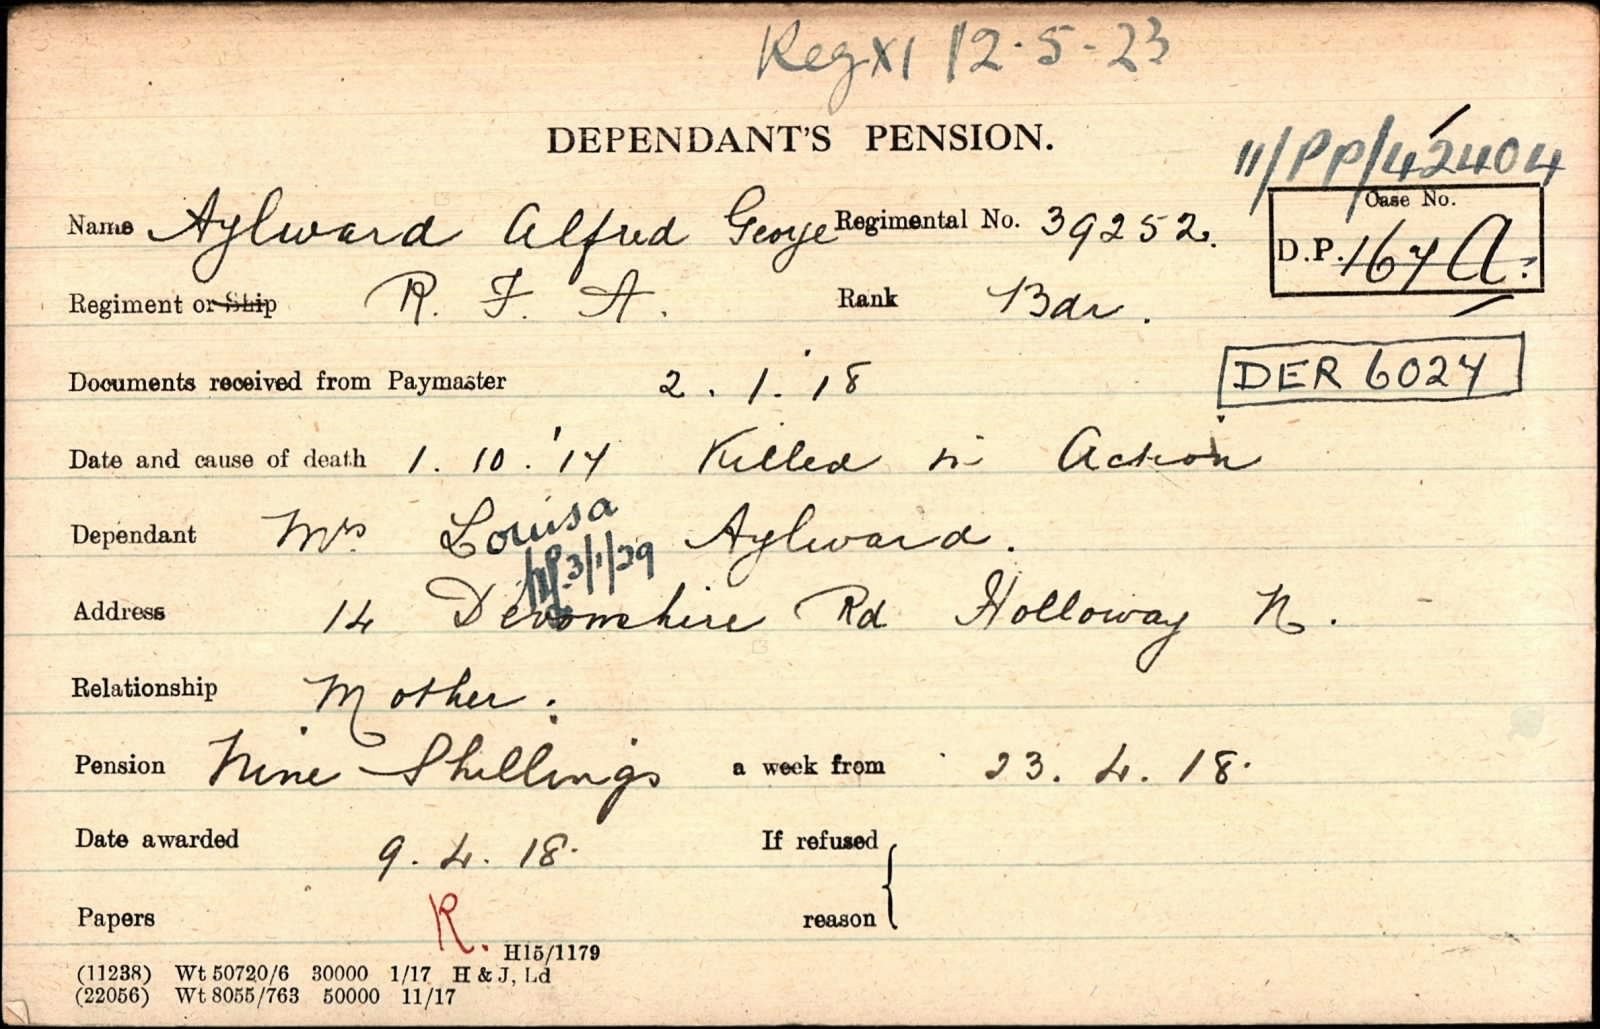 Reg XI 12-5-23
DEPENDANT'S PENSION.
11/PP/42404
Name Aylward Alfred George Regimental No. 39252.
Case No.
D.P. 167 A.
Regiment or Ship R. F. A. Rank Bdr.
Documents received from Paymaster 2. 1. '18
DER 6027
Date and cause of death 1. 10. '17 Killed in Action
Dependant Mrs Louisa Aylward.
3/1/29
Address 14 Devonshire Rd Holloway N.
Relationship Mother.
Pension Nine Shillings a week from 23. 4. 18.
Date awarded 9. 4. 18. If refused
Papers R. reason
H15/1179
(11238) Wt 50720/6 30000 1/17 H & J, Ld
(22056) Wt 8055/763 50000 11/17